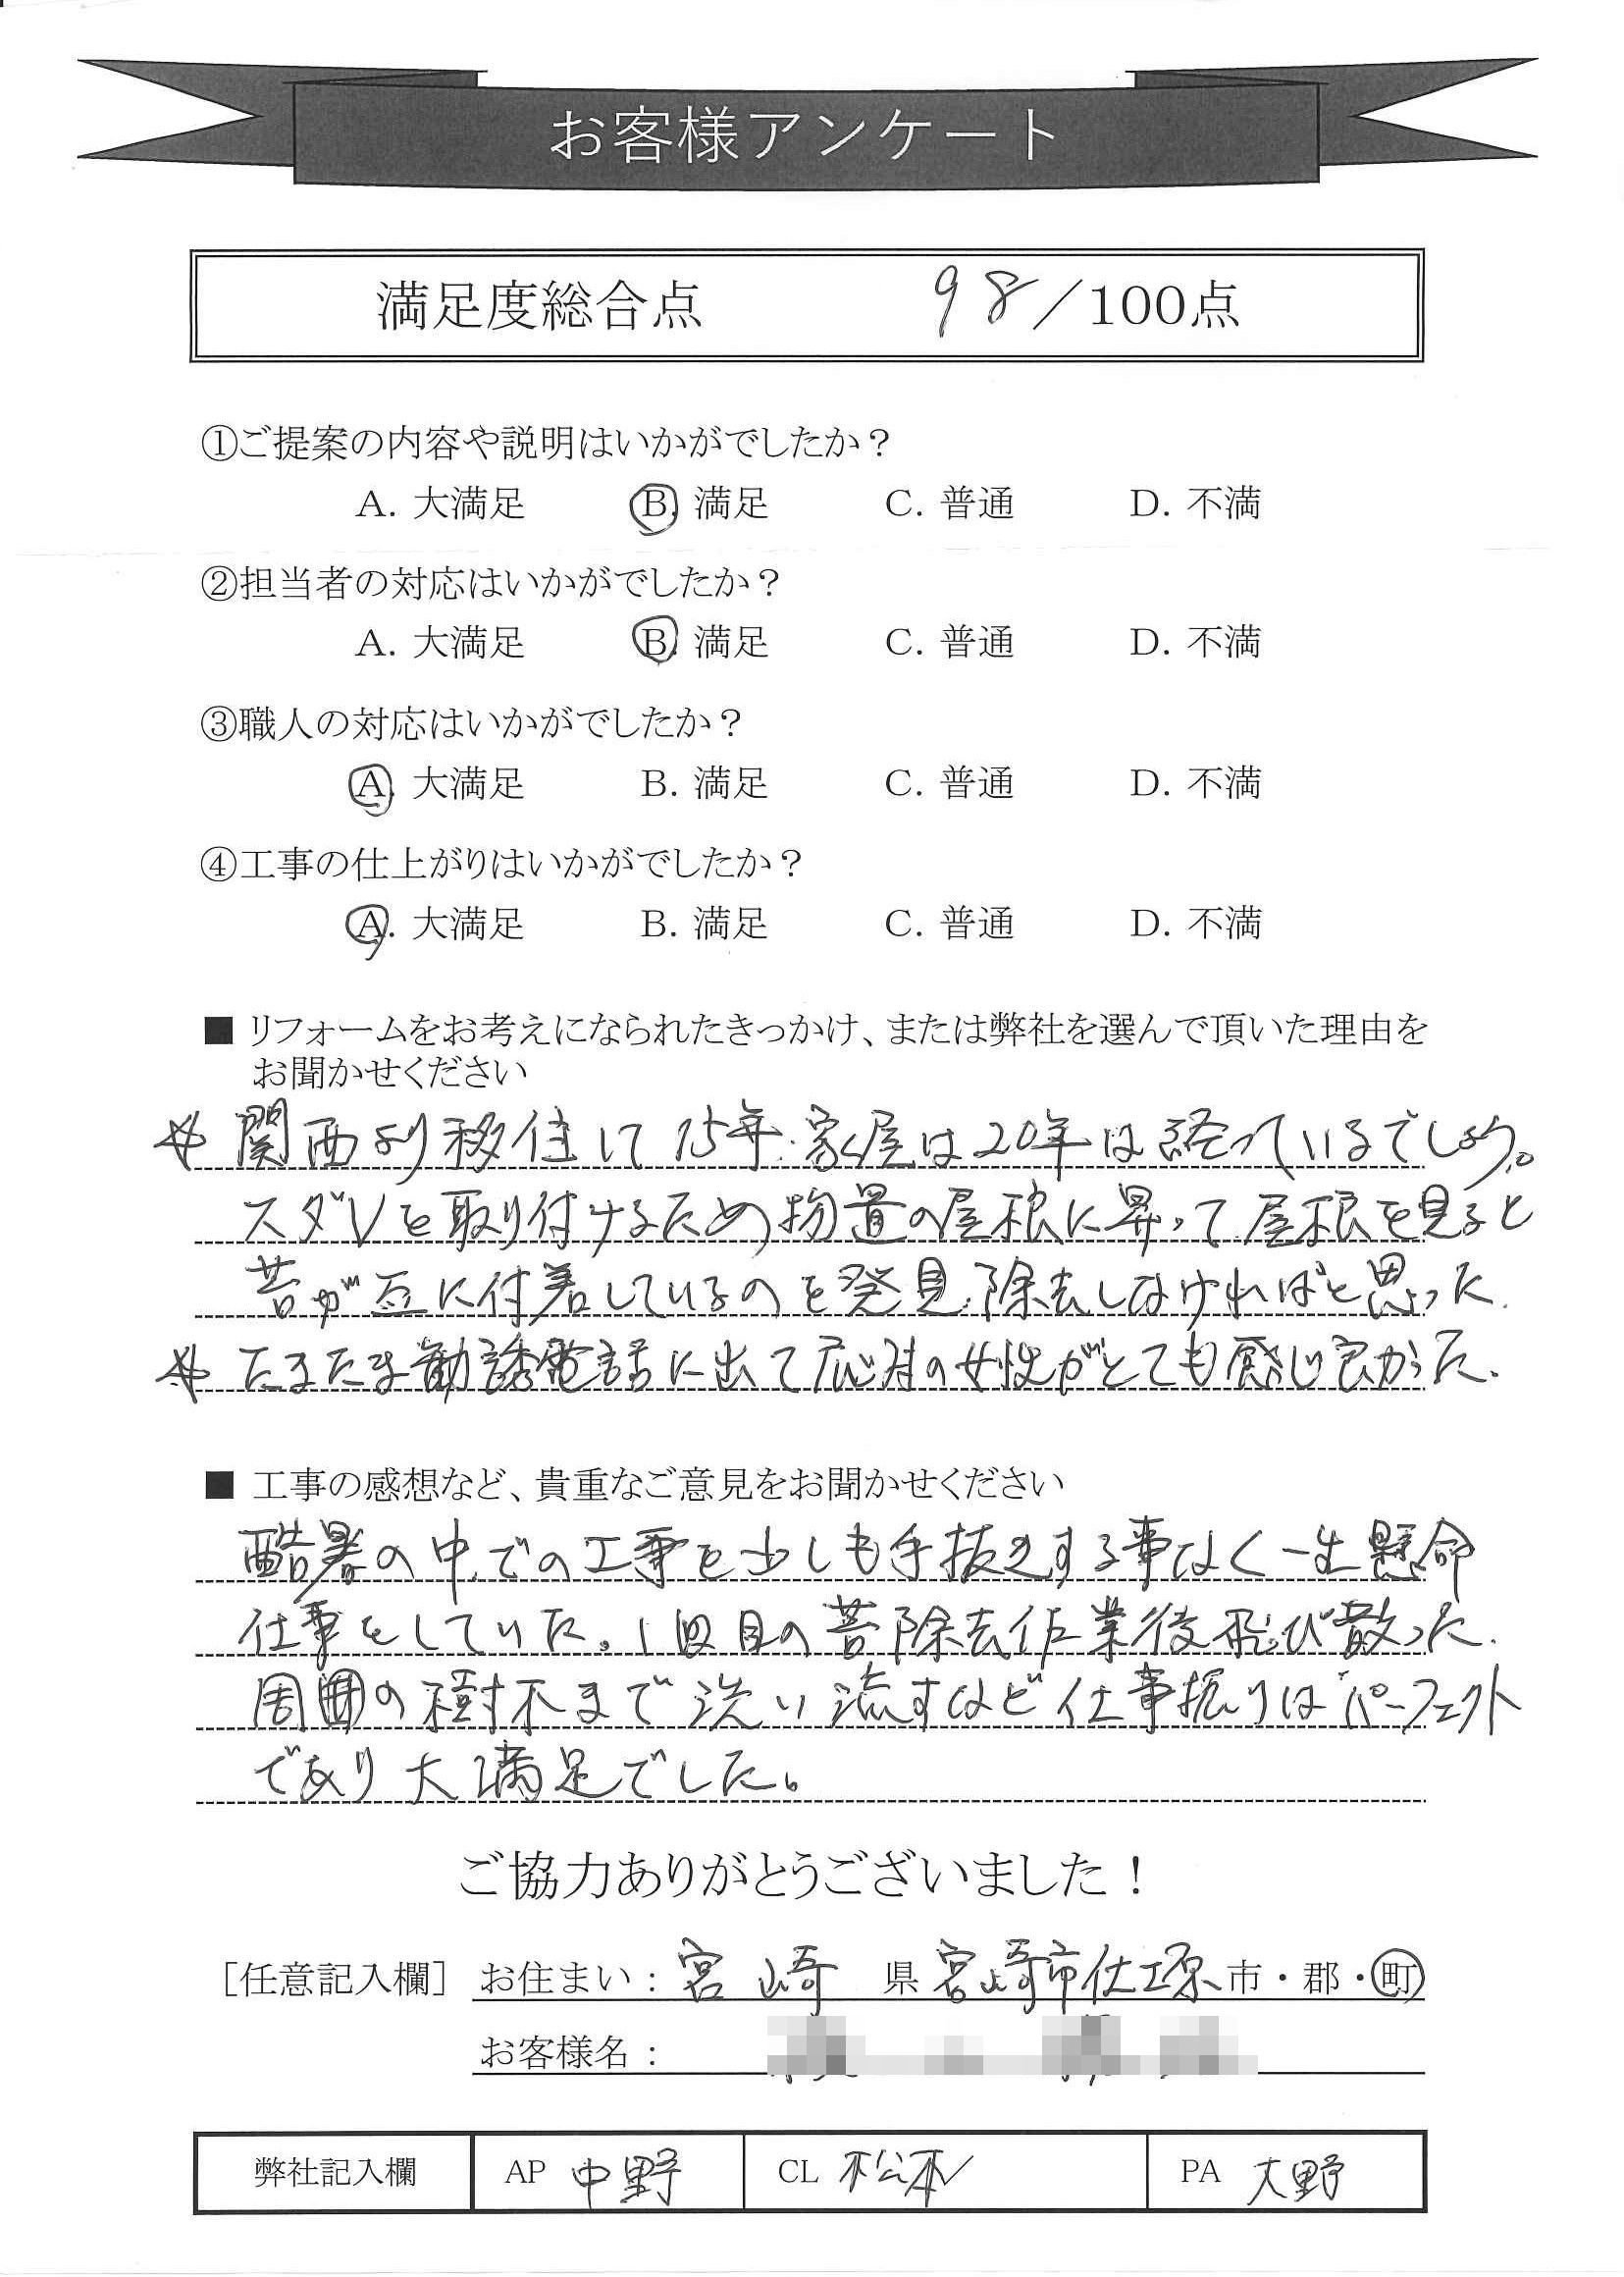 お客様アンケート
満足度総合点 98/100点
①ご提案の内容や説明はいかがでしたか?
A. 大満足 B. 満足 C. 普通 D. 不満
②担当者の対応はいかがでしたか?
A. 大満足 B. 満足 C. 普通 D. 不満
③職人の対応はいかがでしたか?
A. 大満足 B. 満足 C. 普通 D. 不満
④工事の仕上がりはいかがでしたか?
A. 大満足 B. 満足 C. 普通 D. 不満
■ リフォームをお考えになられたきっかけ、または弊社を選んで頂いた理由を
お聞かせください
関西より移住して15年.家屋は20年は経っているでしょう。
スダレを取り付けるため物置の屋根に昇って屋根を見ると
苔が 瓦に付着しているのを発見.除去しなければと思った.
たまたま勧誘電話に出て応対の女性がとても感じ良かった.
■ 工事の感想など、貴重なご意見をお聞かせください
酷暑の中での工事を少しも手抜きする事なく一生懸命
仕事をしていた。1回目の苔除去作業後飛び散った.
周囲の樹木まで洗い流すなど仕事振りはパーフェクト
であり大満足でした。
ご協力ありがとうございました!
[任意記入欄] お住まい: 宮崎 県 宮崎市佐土原 市・郡・町
お客様名:
弊社記入欄 AP 中野 CL 松本 PA 大野